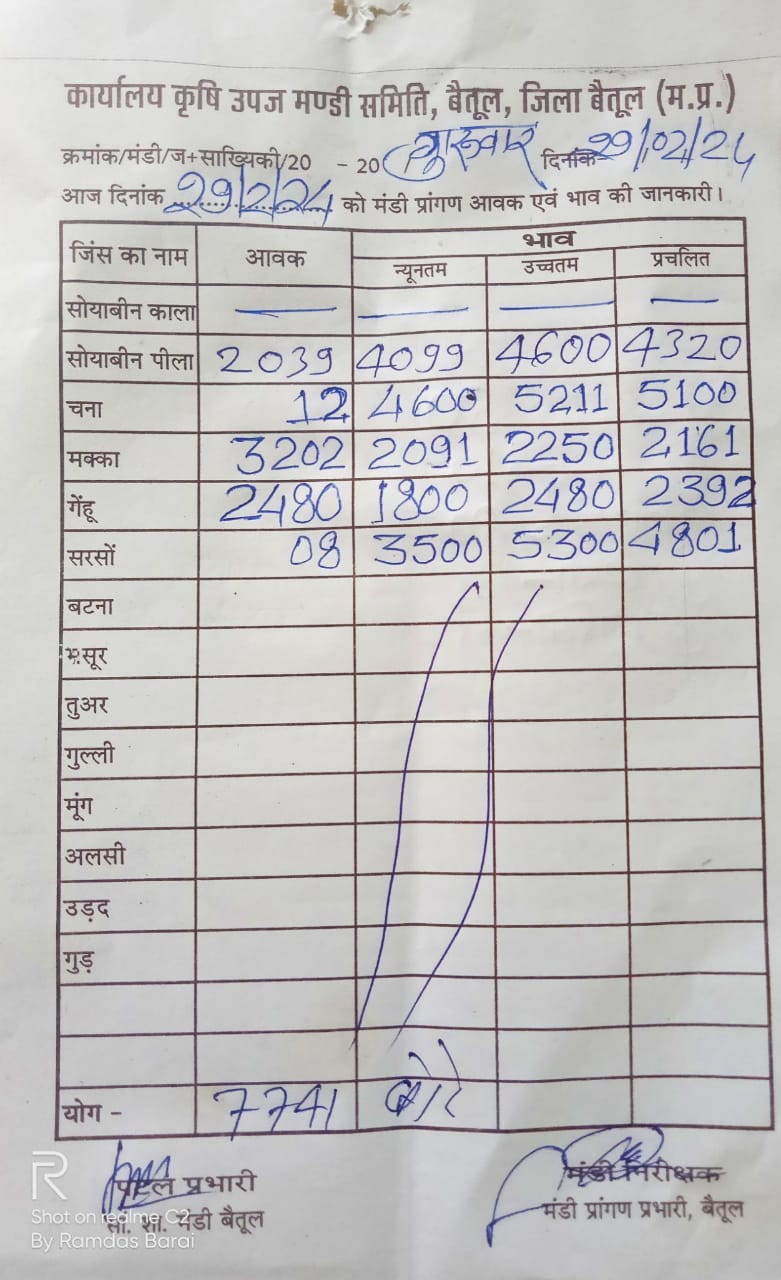 कार्यालय कृषि उपज मण्डी समिति, बैतूल, जिला बैतूल (म.प्र.)
क्रमांक/मंडी/ज+सांख्यिकी/20 - 20 गुरूवार दिनांक 29/02/24
आज दिनांक 29/2/24 को मंडी प्रांगण आवक एवं भाव की जानकारी।
जिंस का नाम आवक भाव
न्यूनतम उच्चतम प्रचलित
सोयाबीन काला — — — —
सोयाबीन पीला 2039 4099 4600 4320
चना 12 4600 5211 5100
मक्का 3202 2091 2250 2161
गेंहू 2480 1800 2480 2392
सरसों 08 3500 5300 4801
बटना
मसूर
तुअर
गुल्ली
मूंग
अलसी
उड़द
गुड़
योग - 7741 बोरे
प्रभारी मंडी निरीक्षक
सां. शा. मंडी बैतूल मंडी प्रांगण प्रभारी, बैतूल
R
Shot on realme C2
By Ramdas Barai